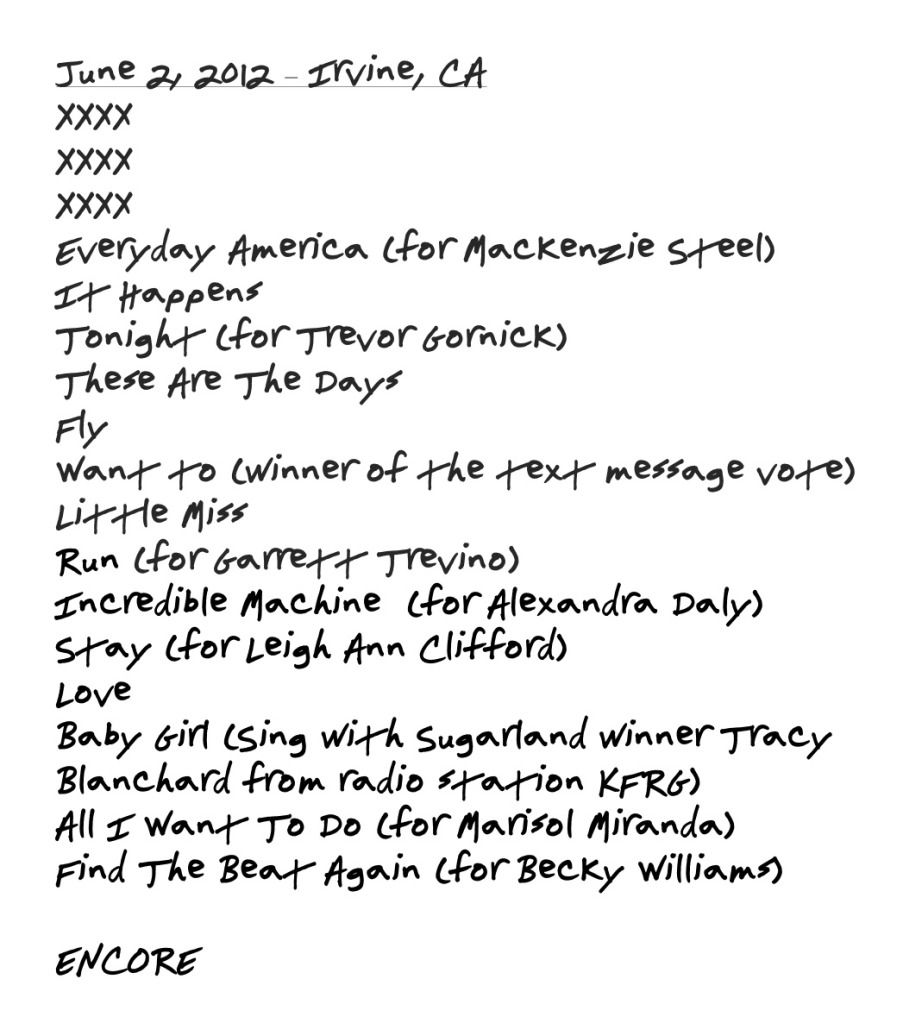 June 2, 2012 - Irvine, CA
XXXX
XXXX
XXXX
Everyday America (for Mackenzie Steel)
It Happens
Tonight (for Trevor Gornick)
These Are The Days
Fly
Want to (winner of the text message vote)
Little Miss
Run (for Garrett Trevino)
Incredible Machine (for Alexandra Daly)
Stay (for Leigh Ann Clifford)
Love
Baby Girl (Sing with Sugarland winner Tracy
Blanchard from radio station KFRG)
All I Want To Do (for Marisol Miranda)
Find The Beat Again (for Becky Williams)
ENCORE